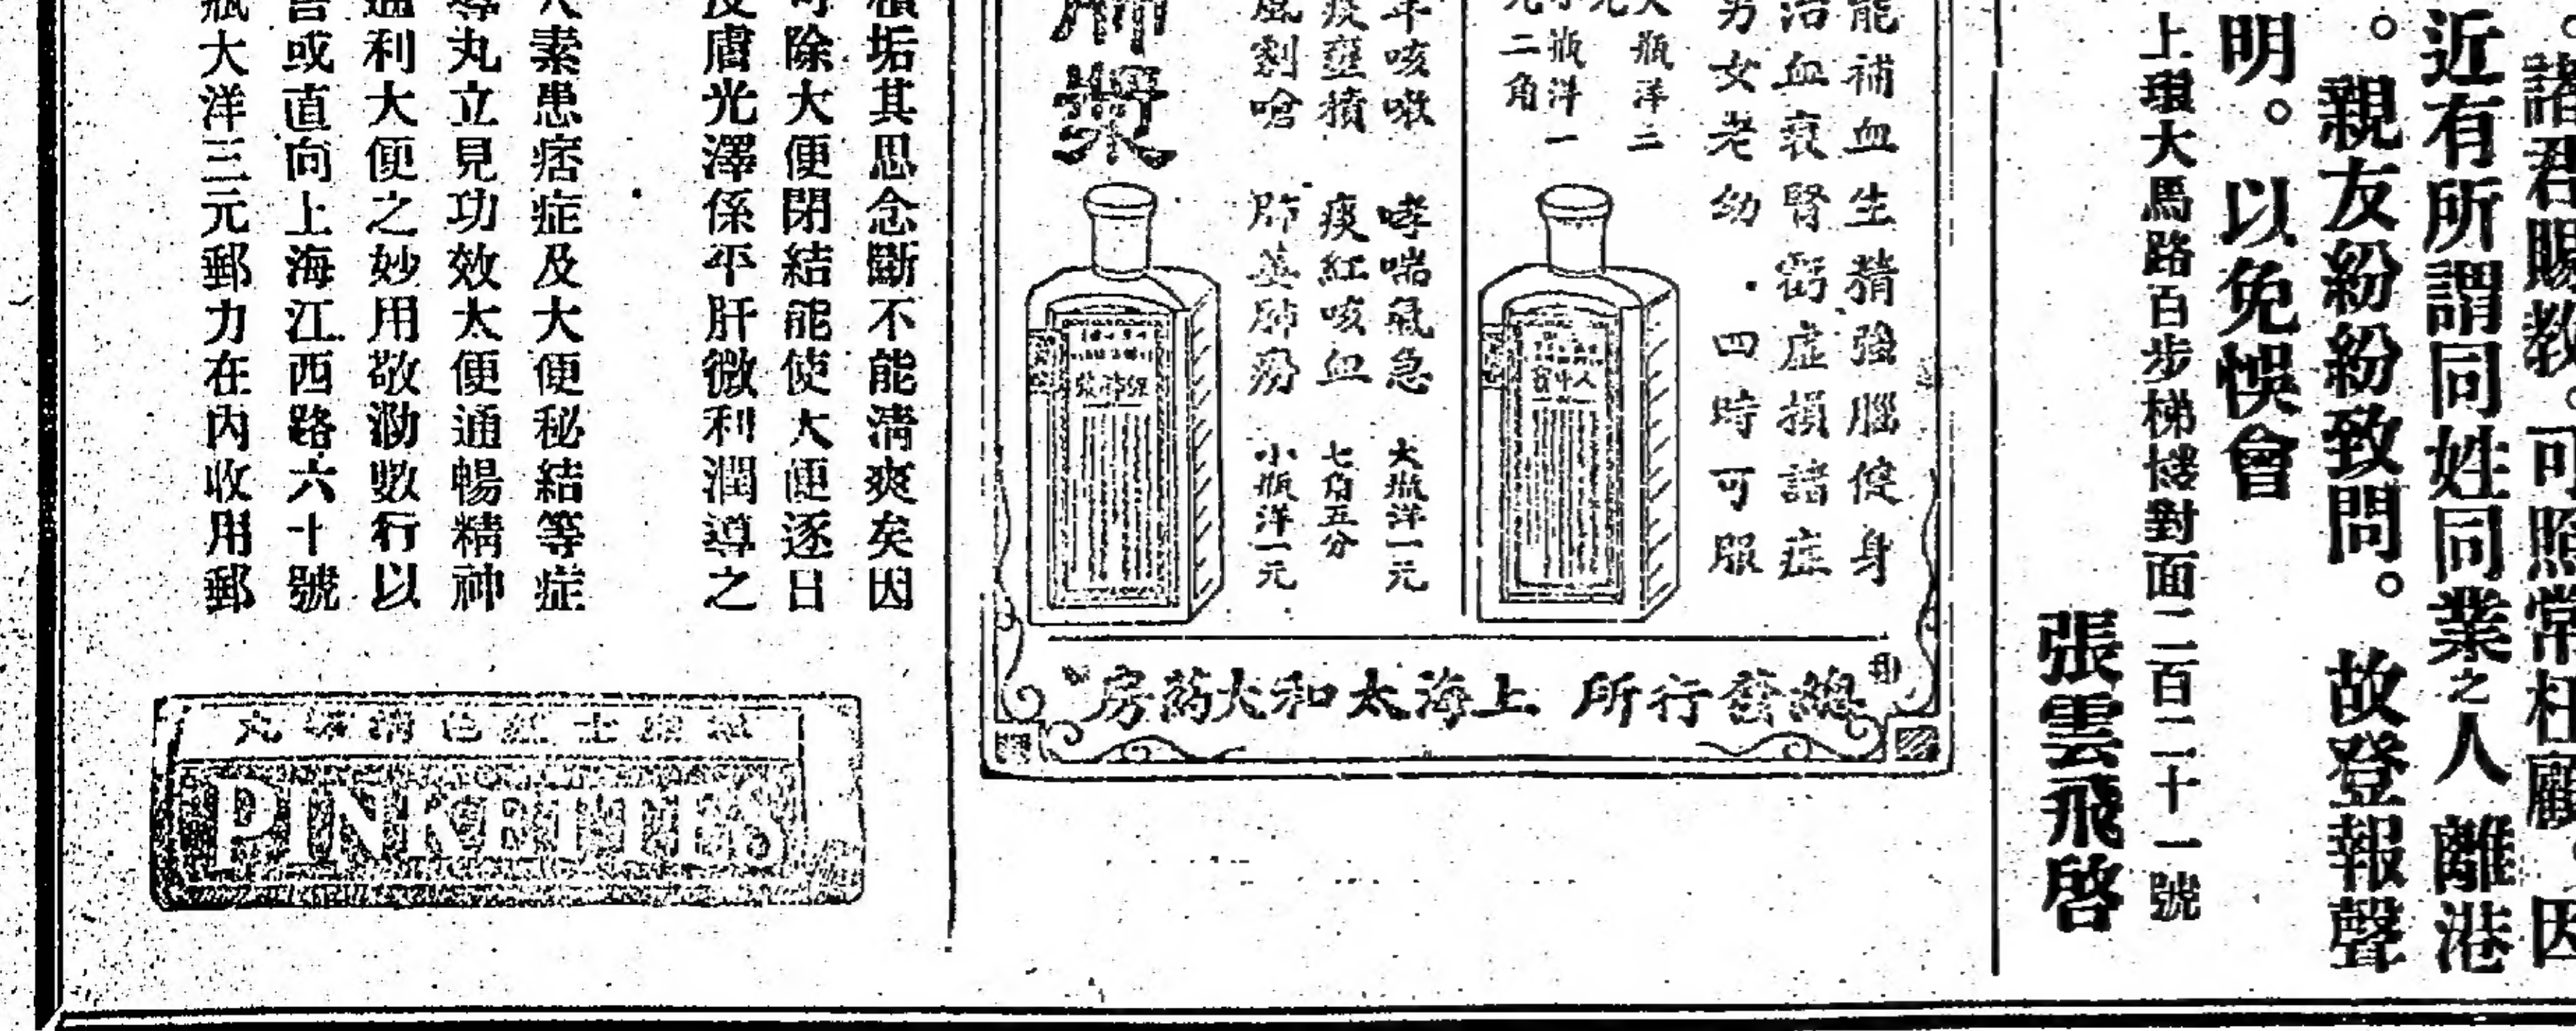 。諸君賜教。可照常枉顧。因
近有所謂同姓同業之人離港
。親友紛紛致問。故登報聲
明。以免悞會
上環大馬路百步梯樓對面二百二十一號
張雲飛啓
能補血生精強腦健身
治血衰腎虧虛損諸症
男女老幼．四時可服
大瓶洋二
元
小瓶洋一
元二角
年咳嗽 哮喘氣急 大瓶洋一元
痰壅積 痰紅咳血 七角五分
風劑嗆 肺萎肺癆 小瓶洋一元
總發行所 上海太和大葯房
積垢其思念斷不能清爽矣因
可除大便閉結能使大便逐日
皮膚光澤係平肝微利潤導之
人素患痞症及大便秘結等症
導丸立見功效大便通暢精神
通利大便之妙用敬泐數行以
告或直向上海江西路六十號
瓶大洋三元郵力在內收用郵
PINKETTES